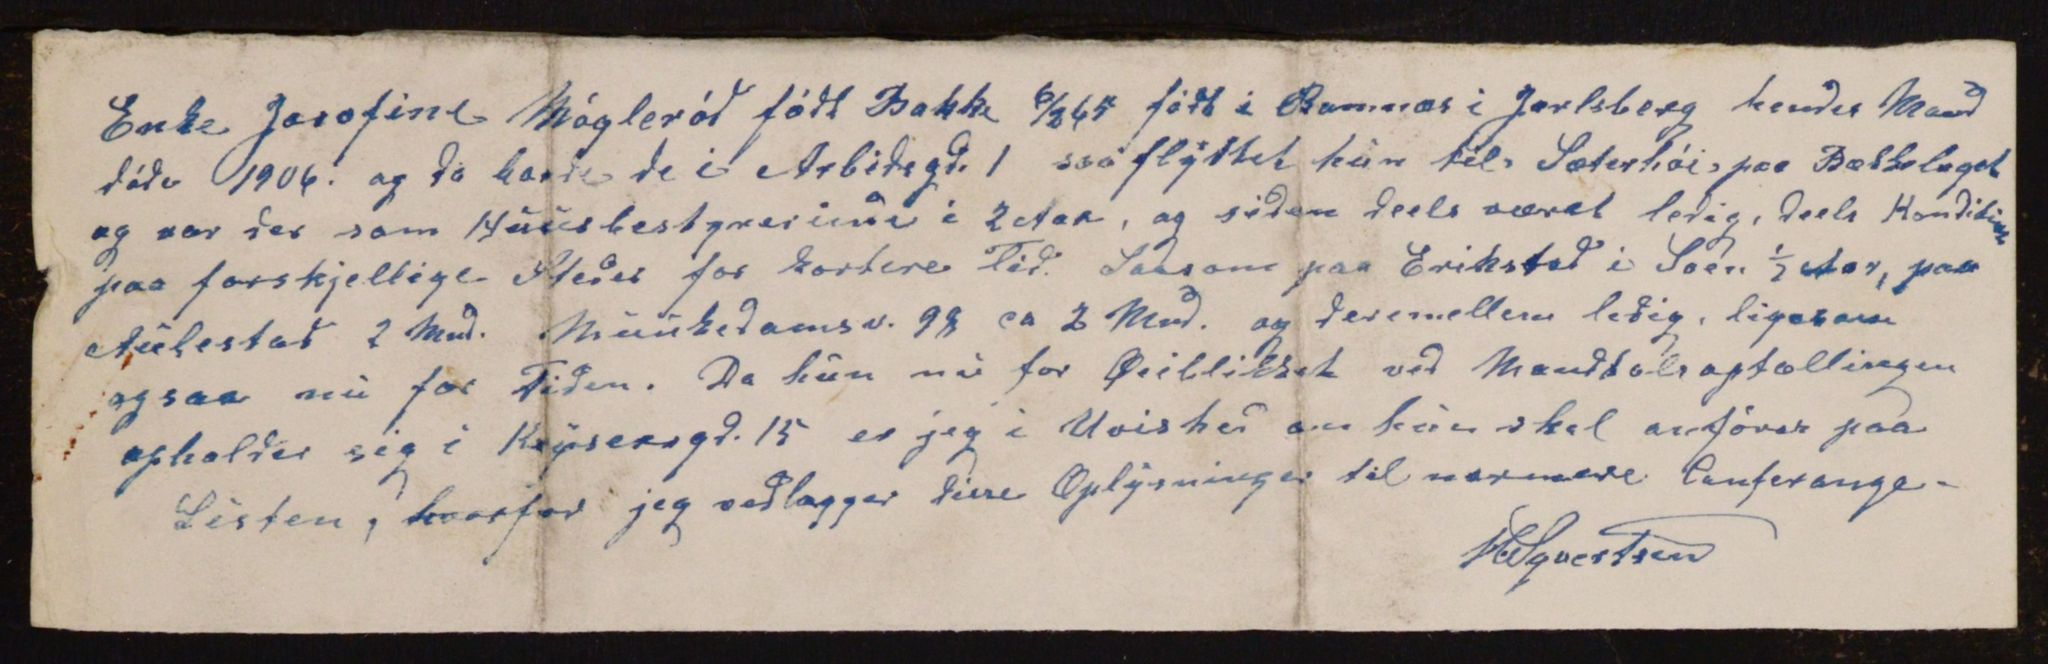 Enke Josofine Møglerød født Bakke 6/2 65 født i Ramnæs i Jarlsberg hendes Mand
døde 1906. og da boede de i Arbidsgd. 1 saa flyttet hun til Sæterhøi paa Bækkelaget
og var der som Huusbestyrerinde i 2 Aar, og siden deels været ledig, deels Kondition
paa forskjellige Steder for kortere Tid. Saasom paa Erikstad i Soen ½ Aar, paa
Aulestad 2 Mnd. Munkedamsv. 98 ca 3 Mnd. og deremellem ledig, ligesom
ogsaa nu for Tiden. Da hun nu for Øieblikket ved Mandtalsoptællingen
opholder sig i Keysersgd. 15 er jeg i Uvished om hun skal anføres paa
Listen, hvorfor jeg vedlægger disse Oplysninger til nærmere Conferange-
Syvertsen